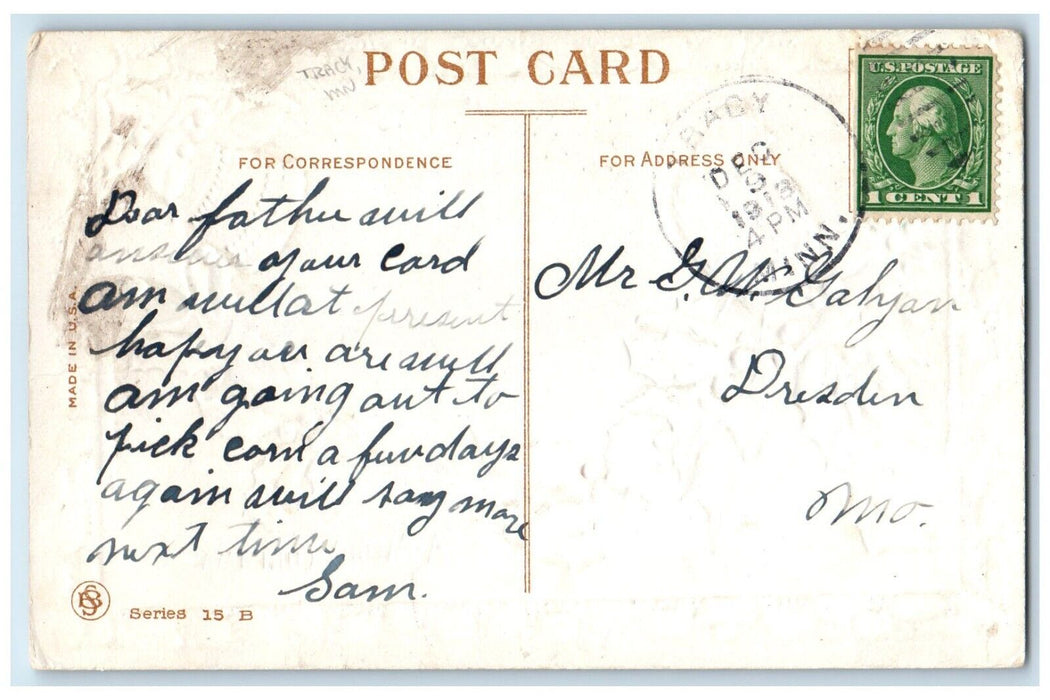 POST CARD
TRACY,
MN
FOR CORRESPONDENCE
FOR ADDRESS ONLY
U.S. POSTAGE
1 CENT 1
TRACY
DEC
1913
4 PM
MINN.
Dear father will
answer your card
am well at present
hope you are well
am going out to
pick corn a few days
again will say more
next time
Sam.
Mr G. W. Gahyan
Dresden
Mo.
MADE IN U.S.A.
Series 15 B